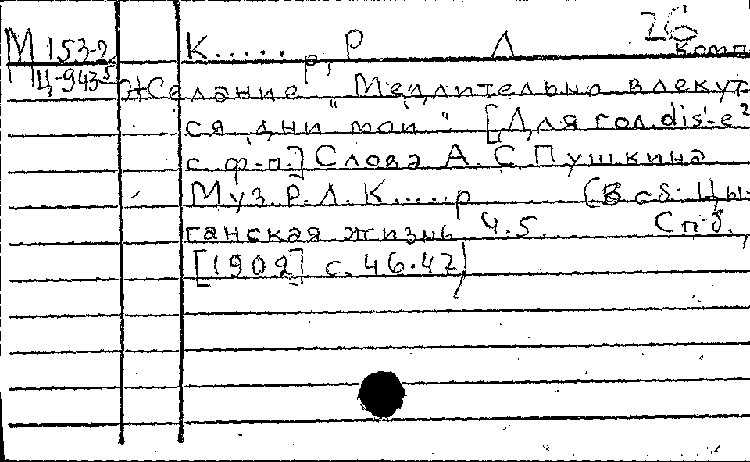 26
М 153-2 К.....р, Р Л комп
Ц-943-5 Желание „Медлительно влекут
ся дни мои" [Для гол. dis'-e²
с ф-п.] Слова А. С Пушкина
Муз. Р. Л. К.....р (В сб. Цы-
ганская жизнь Ч. 5. Спб.,
[1902] с. 46-47)